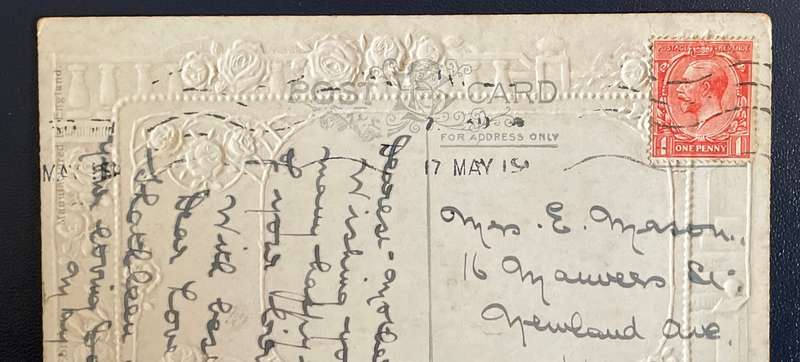 POST CARD
FOR ADDRESS ONLY
POSTAGE REVENUE
ONE PENNY
17 MAY 19
MAY
Mrs. E. Mason.
16 Manvers St.
Newland Ave.
Dearest Mother
Wishing you
many
of your
With best
dear love
Kathleen
Your loving
Manufactured in England